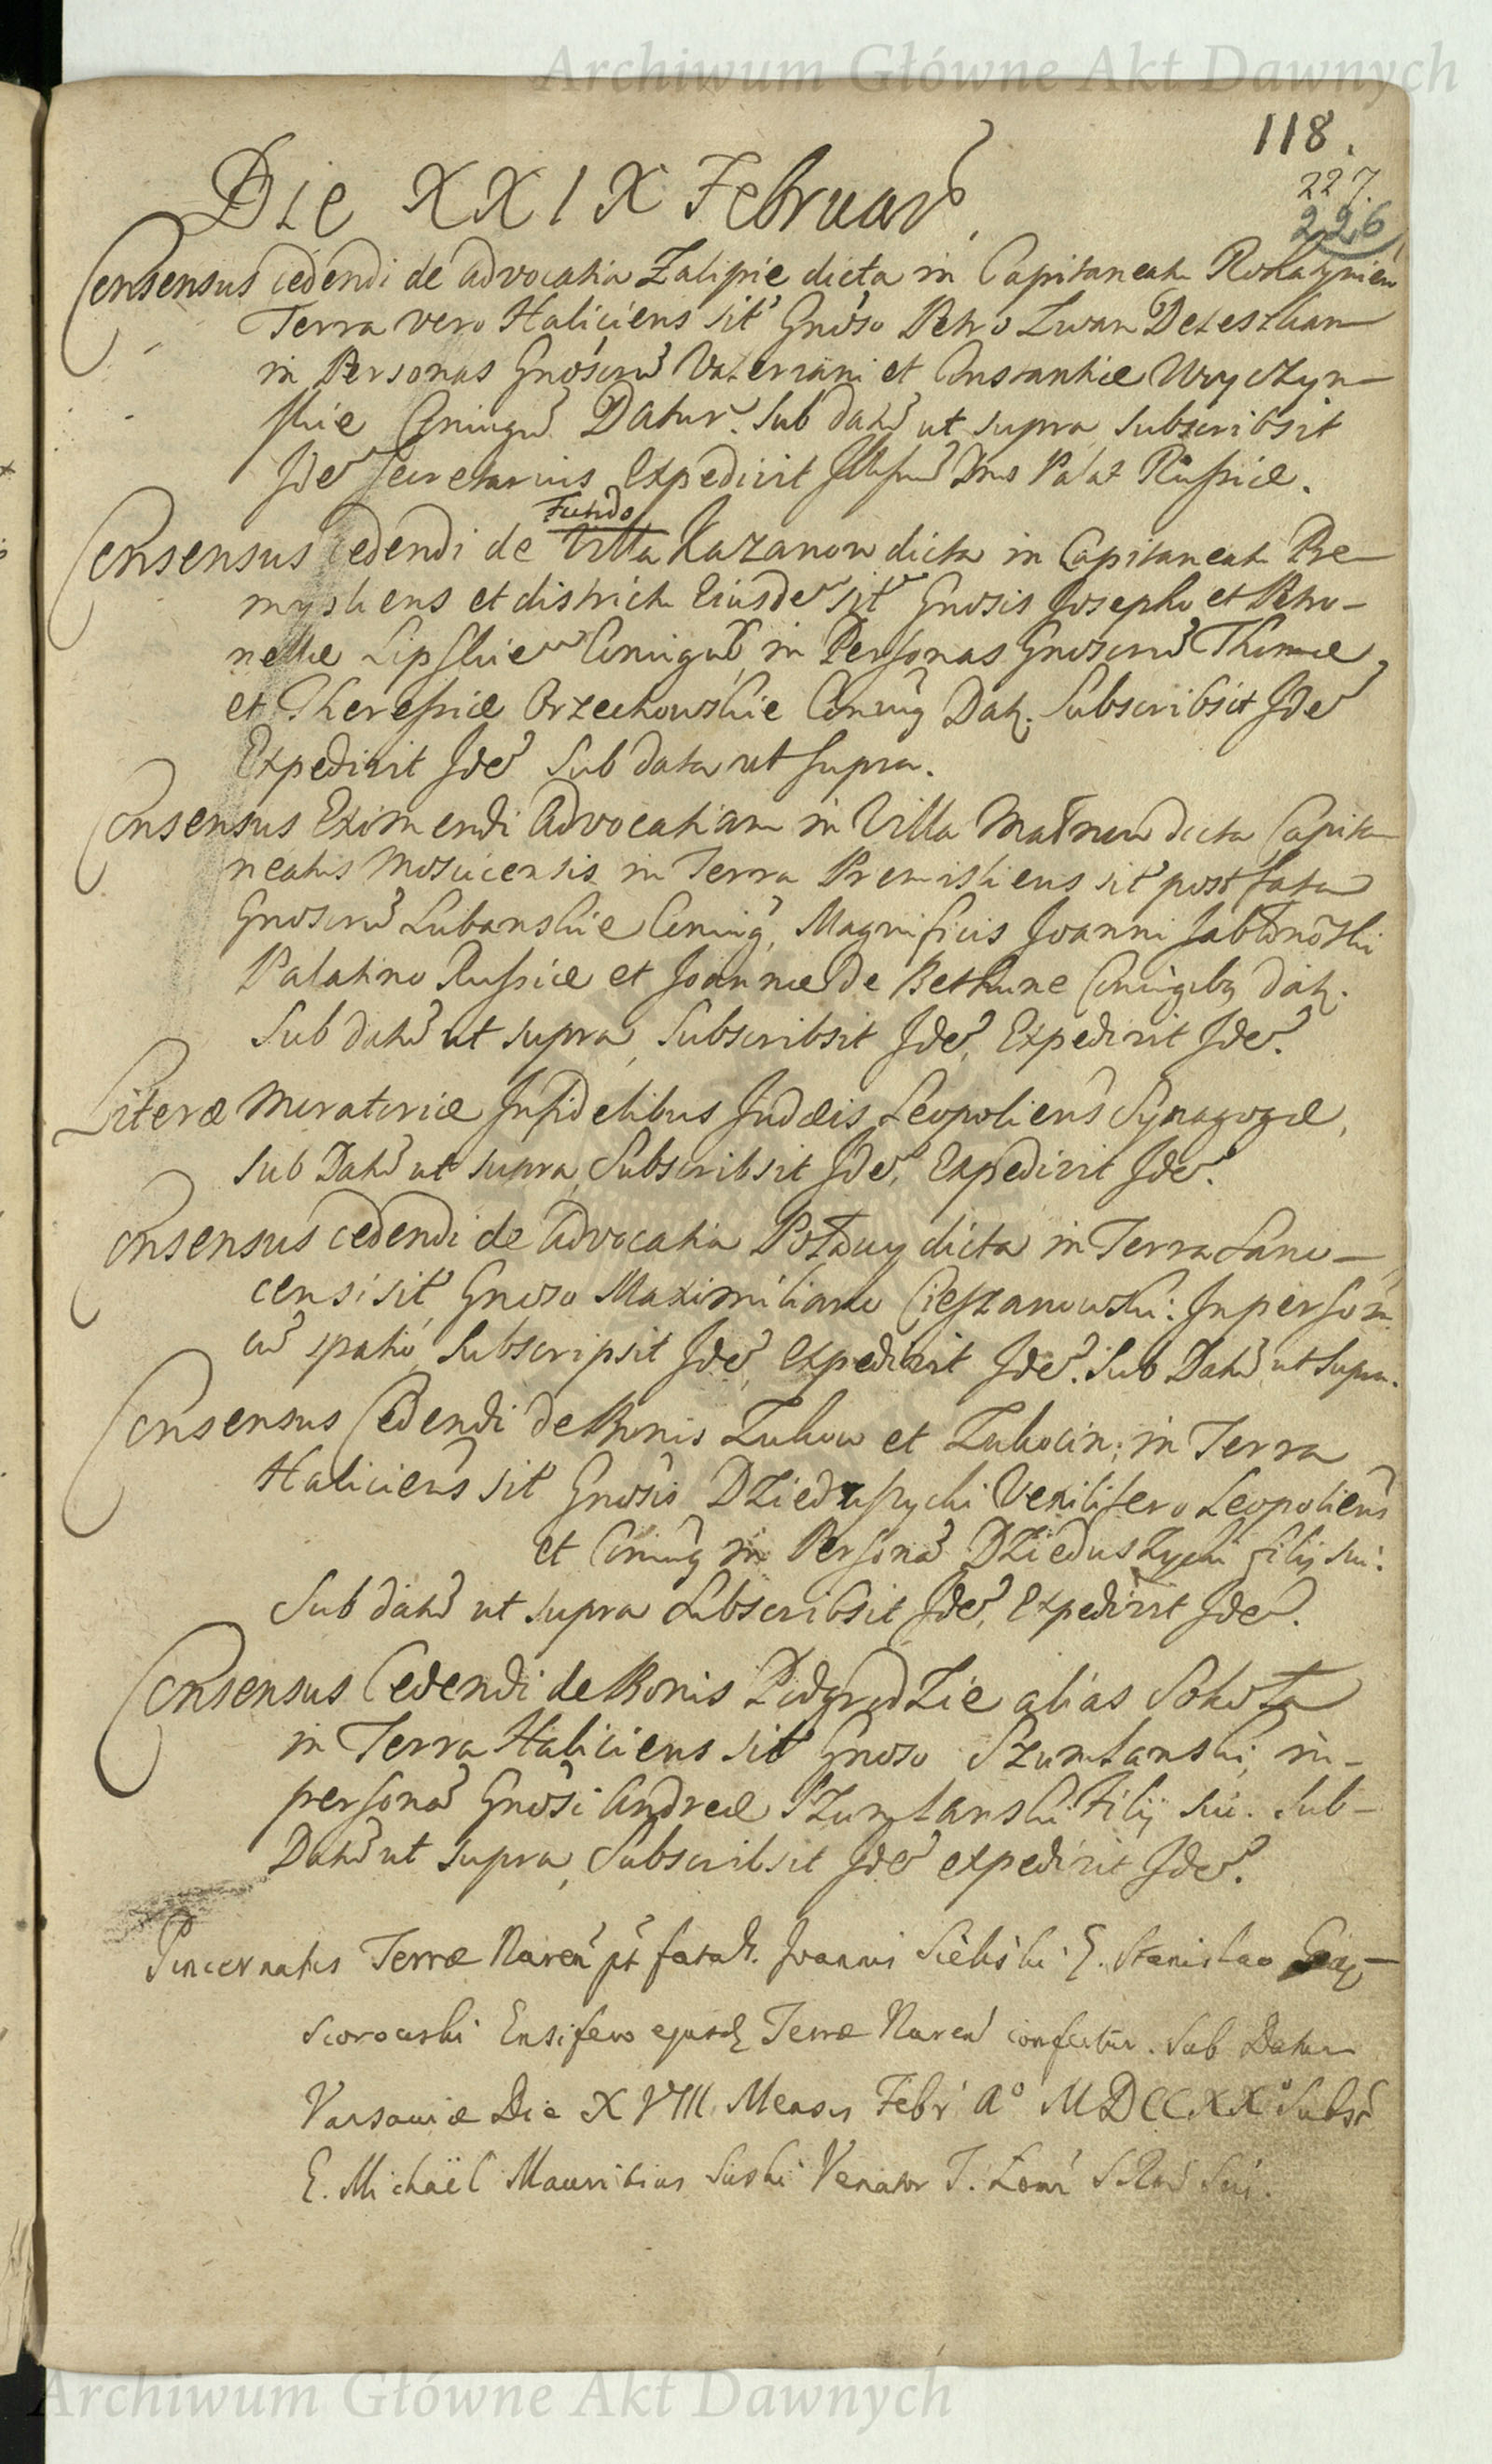 Archiwum Główne Akt Dawnych
118.
227.
226
Die XXIX Februar
Consensus cedendi de advocatia Zalipie dicta in Capitaneatu Rohatynien
Terra vero Haliciens sit Gnoso Petro Iwan
in Personas Gnosoru Valeriani et Constantiæ Wyczyn-
skie Coniugu Datur. Sub data ut supra subscribsit
Ide Secretarius Expedivit Illsmu Dnus Palat Russiæ.
Fundo
Consensus Cedendi de Villa Kazanow dicta in Capitaneatu Pre-
mysliens et districtu Eiusde sit Gnosis Josepho et Petro-
nellæ Lipskie Coniugu in Personas Gnosoru Thomæ
et Theressiæ Orzechowskie Coniug Dat. Subscribsit Ide
Expedivit Ide Sub data ut supra.
Consensus Eximendi Advocatiam in Villa Małnow dicta Capita
neatus Moscicensis in Terra Premisliens sit post fata
Gnosoru Lubanskie Coniug, Magnificis Joanni Jabłonoski
Palatino Russiæ et Joannæ de Bethune Coniugibq dat.
Sub data ut supra, Subscribsit Ide, Expedivit Ide.
Literæ Moratoriæ Infidelibus Judæis Leopoliens Synagogæ,
sub Data ut supra, Subscribsit Ide, Expedivit Ide.
Consensus cedendi de Advocatia dicta in Terra Sano-
censi sit Gnoso Maximiliano Cieszanowski: In person
cu spatio, Subscripsit Ide, Expedivit Ide. Sub Data ut supra.
Consensus Cedendi de Bonis Zukow et Zukocin; in Terra
Haliciens sit Gnosis Dzieduszycki Vexilifero Leopoliens
et Coniug in Persona Dzieduszycki filij sui.
Sub data ut supra Subscribsit Ide, Expedivit Ide.
Consensus Cedendi de Bonis Podgrodzie alias Sokoła
in Terra Haliciens sit Gnoso Szumlanski, in-
persona Gnosi Andreæ Szumlanski Filij sui. Sub-
Data ut supra, Subscribsit Ide expedivit Ide.
Pincernatus Terræ Naren pt fata Joannis G. Stanislao
Ensifero ejusd Terræ Naren confertur. Sub Data
Varsaviæ Die XVIII Mensis Febr Ao MDCCXXo Subscr
G. Michaël Mauritius Suski Venator T. Lomz
Archiwum Główne Akt Dawnych